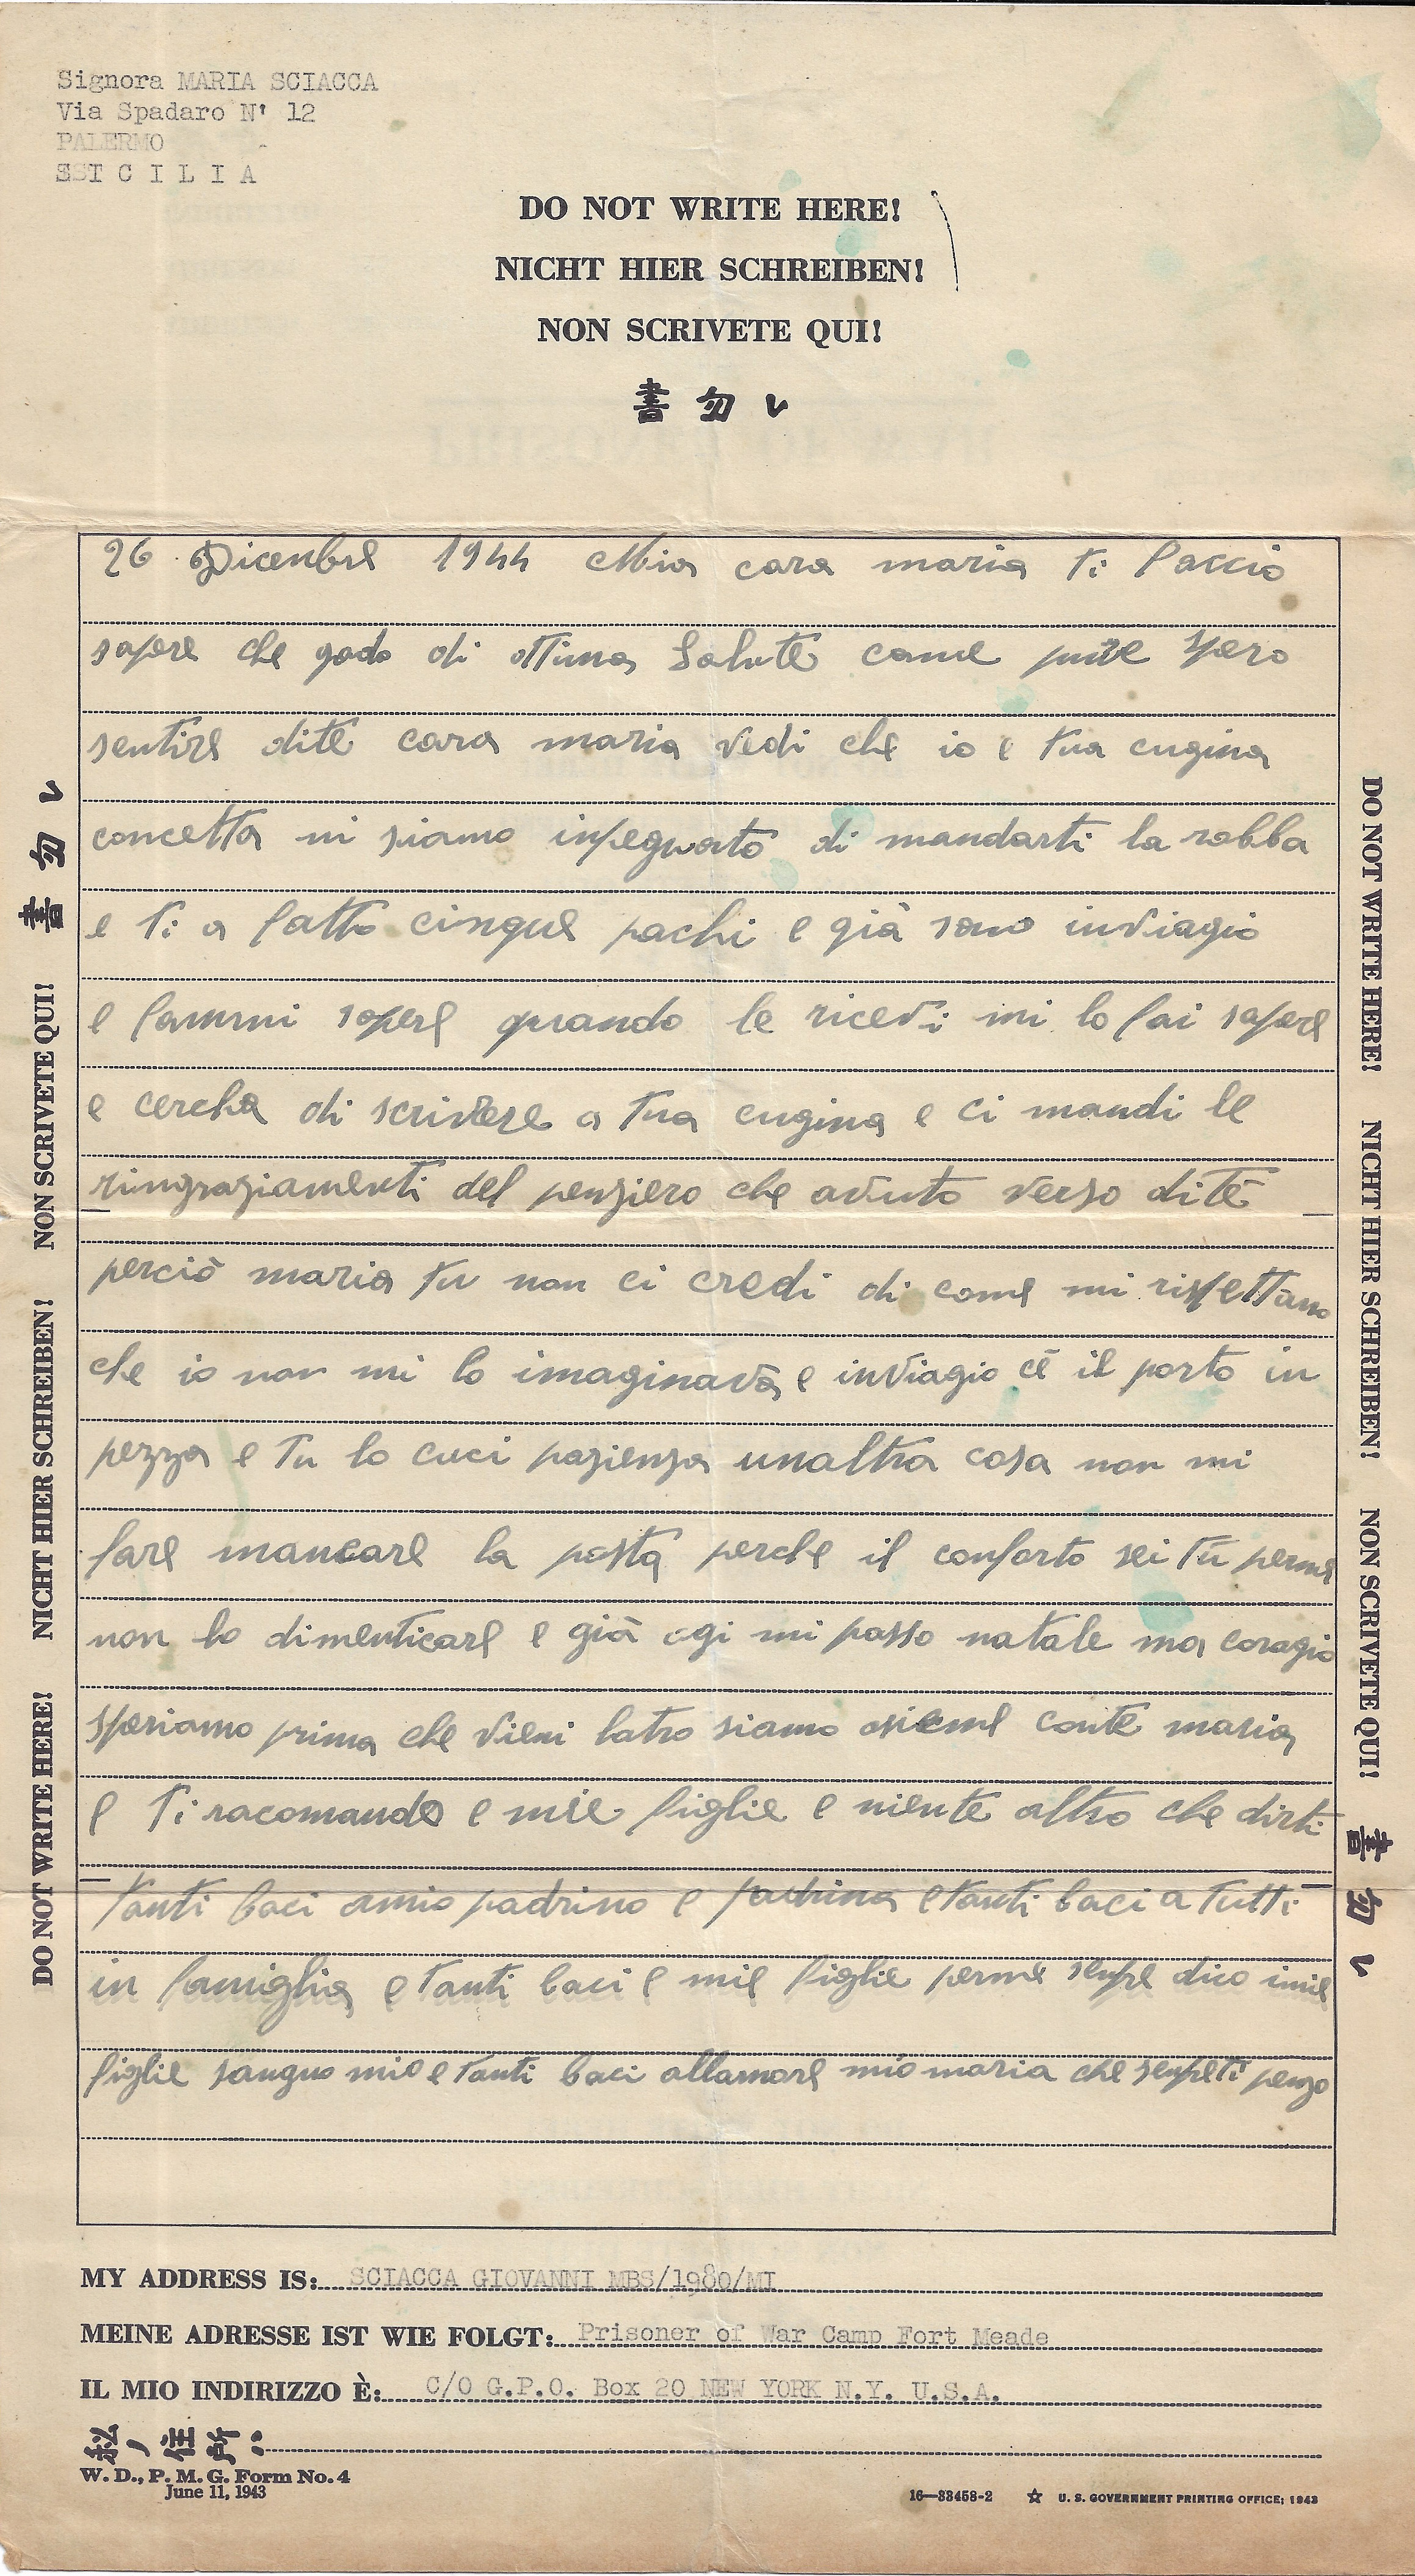 Signora MARIA SCIACCA
Via Spadaro N' 12
PALERMO
SICILIA
DO NOT WRITE HERE!
NICHT HIER SCHREIBEN!
NON SCRIVETE QUI!
書勿レ
26 Dicenbre 1944 Mia cara maria ti faccio
sapere che godo di ottima Salute come pure spero
sentire dite cara maria vedi che io e tua cugina
concetta ni siamo inpegnato di mandarti la robba
e ti a fatto cinque pachi e già sono inviagio
e fammi sapere quando le ricevi mi lo fai sapere
e cercha di scrivere a tua cugina e ci mandi le
ringraziamenti del penziero che avuto verso dite
perciò maria tu non ci credi di come mi rispettano
che io non mi lo imaginava e inviagio cè il porto in
pezza e tu lo cuci pazienza unaltra cosa non mi
fare mancare la posta perche il conforto sei tù perme
non lo dimenticare e già ogi mi passo natale ma coragio
speriamo prima che vieni latro siamo asieme conte maria
e ti racomando e mie figlie e niente altro che dirti
tanti baci amio padrino e padrina e tanti baci a tutti
in famiglia e tanti baci e mie figlie perme senpre dico imie
figlie sanguo mio e tanti baci allamore mio maria che senpeti penzo
MY ADDRESS IS: SCIACCA GIOVANNI MBS/1980/MI
MEINE ADRESSE IST WIE FOLGT: Prisoner of War Camp Fort Meade
IL MIO INDIRIZZO È: C/O G.P.O. Box 20 NEW YORK N.Y. U.S.A.
私ノ住所ハ
W. D., P. M. G. Form No. 4
June 11, 1943
16—33458-2 ☆ U. S. GOVERNMENT PRINTING OFFICE: 1943
DO NOT WRITE HERE! NICHT HIER SCHREIBEN! NON SCRIVETE QUI! 書勿レ
DO NOT WRITE HERE! NICHT HIER SCHREIBEN! NON SCRIVETE QUI! 書勿レ